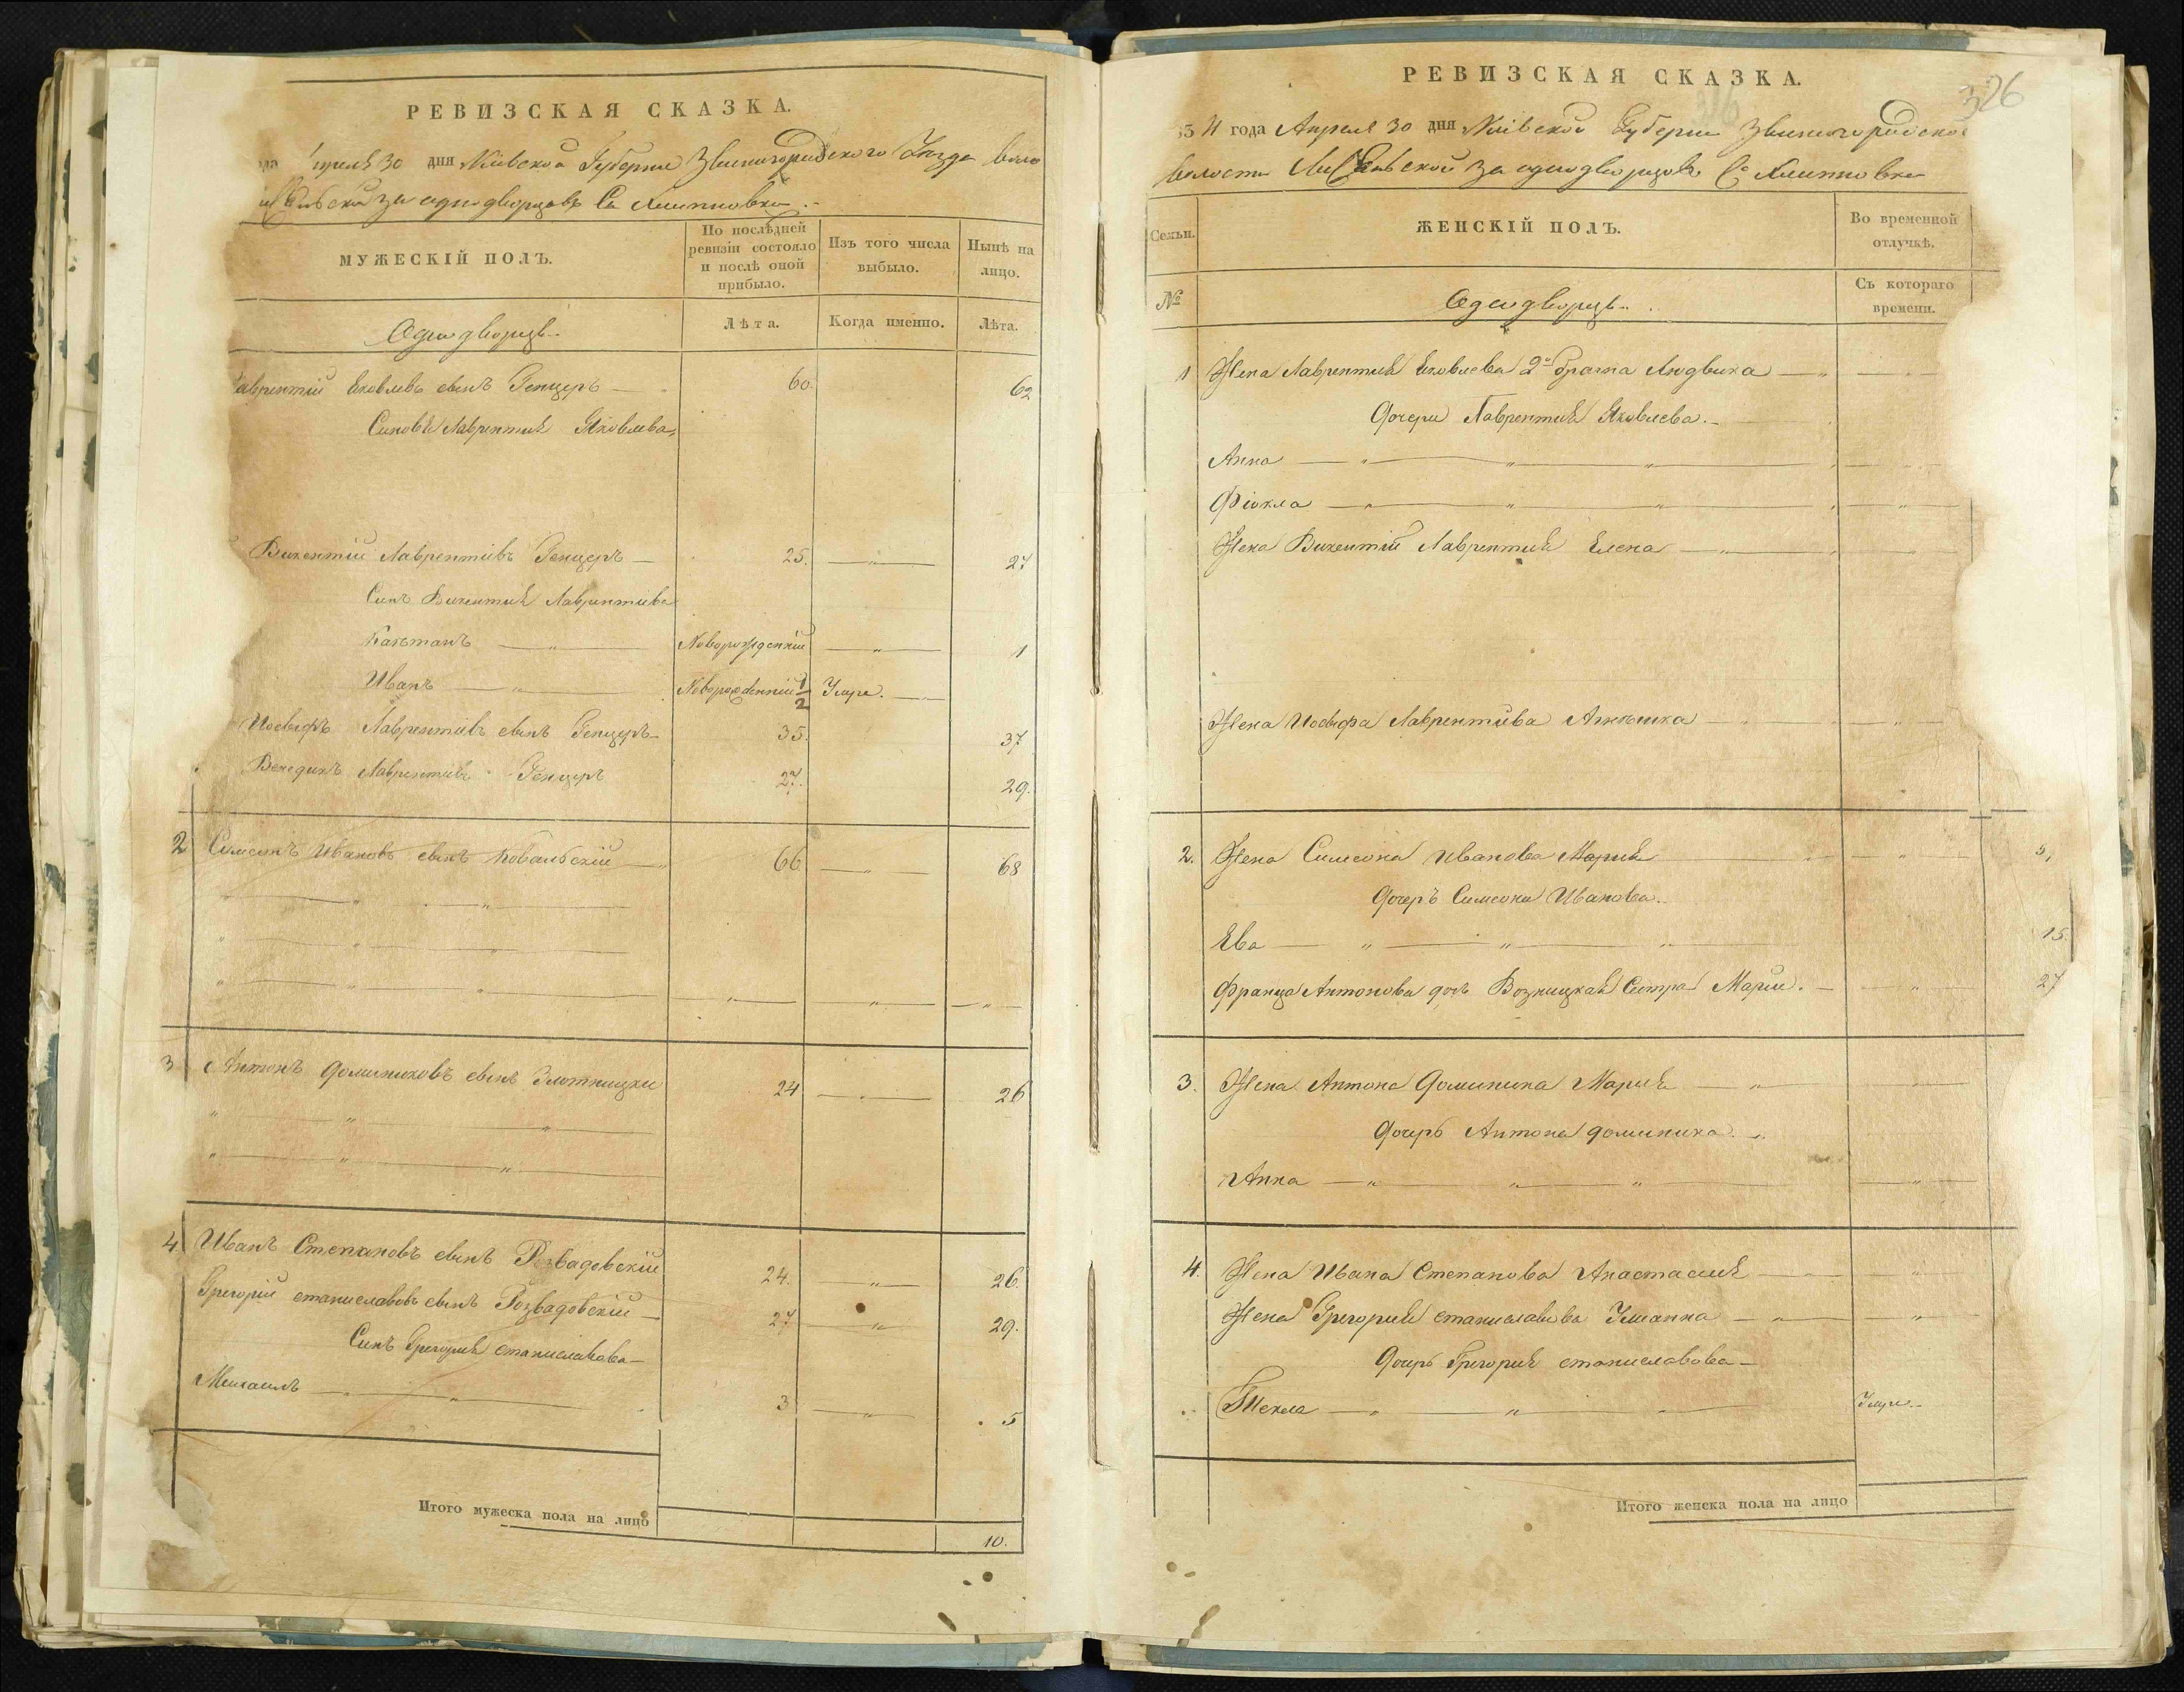 РЕВИЗСКАЯ СКАЗКА.
30 дня Киевской Губернии Звенигородского Уезда
за однодворцовъ
МУЖЕСКІЙ ПОЛЪ.
По послѣдней ревизіи состояло и послѣ оной прибыло.
Изъ того числа выбыло.
Нынѣ на лицо.
Однодворцы
Лѣта.
Когда именно.
Лѣта.
Лаврентій Яковлевъ сынъ 60. 62
Синовя Лаврентия Яковлева
Викентій Лаврентіевъ 25. 27
Синъ Викентия Лаврентіева
Каэтанъ Новорожденній 1
Иванъ Новорожденній 1/2 Умре.
Иосифъ Лаврентіевъ сынъ 35. 37
Лаврентіевъ 27. 29.
2 Симеонъ Ивановъ сынъ Ковальскій 66 68
3 Антонъ Доминиковъ сынъ Злотницки 24 26
4 Иванъ Степановъ сынъ Розвадовскій 24. 26.
Григорій станиславовъ сынъ Розвадовскій 27 29.
Синъ Григория станиславова
Михаилъ 3 5
Итого мужеска пола на лицо 10.
326
РЕВИЗСКАЯ СКАЗКА.
года Апреля 30 дня Киевской Губернии
волости за однодворцовъ
Семьи.
ЖЕНСКІЙ ПОЛЪ.
Во временной отлучкѣ.
№
Однодворцы
Съ котораго времени.
1 Жена Лаврентия Яковлева 2о брачна Людвика
Дочери Лаврентия Яковлева.
Анна
Фіокла
Жена Викентій Лаврентия Елена
Жена Иосифа Лаврентіева
2. Жена Симеона Иванова Мария
Дочеръ Симеона Иванова.
Ева 15.
Франца Антонова дочь Сестра Марии. 27
3. Жена Антона Доминика Мария
Дочерь Антона Доминика.
Анна
4. Жена Ивана Степанова Анастасия
Жена Григория станиславова
Дочерь Григория станиславова
Текла Умре.
Итого женска пола на лицо